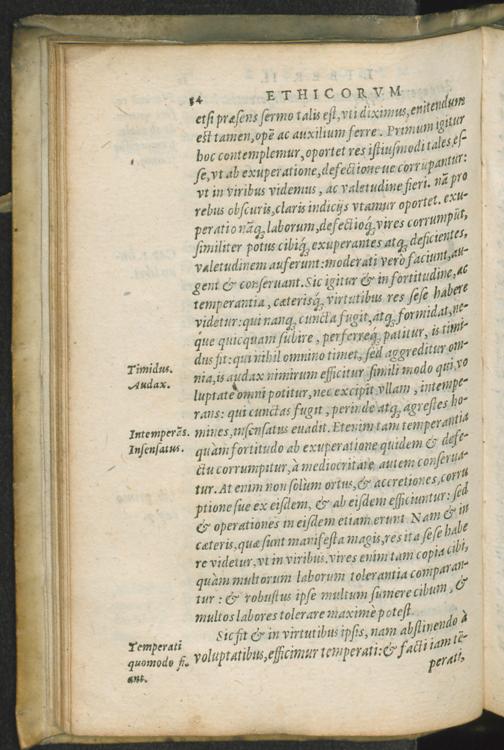 34
ETHICORVM
etsi præsens sermo talis est, vti diximus, enitendum
est tamen, opē ac auxilium ferre. Primum igitur
hoc contemplemur, oportet res istiusmodi tales, es-
se, vt ab exuperatione, defectione ue corrupantur:
vt in viribus videmus, ac valetudine fieri. nā pro
rebus obscuris, claris indicijs vtamur oportet. exu-
peratio nāq; laborum, defectioq́; vires corrumpūt,
similiter potus cibiq́; exuperantes atq; deficientes,
valetudinem auferunt: moderati verò faciunt, au-
gent & conseruant. Sic igitur & in fortitudine, ac
temperantia, cæterisq́; virtutibus res sese habere
videtur: qui nanq; cuncta fugit, atq; formidat, ne-
que quicquam subire, perferreq́; patitur, is timi-
dus fit: qui nihil omnino timet, sed aggreditur om-
nia, is audax nimirum efficitur simili modo qui vo
luptate omni potitur, nec excipit vllam, intempe-
rans: qui cunctas fugit, perinde atq; agrestes ho-
mines, insensatus euadit. Etenim tam temperantia
quàm fortitudo ab exuperatione quidem & defe-
ctu corrumpitur, à mediocritate autem conserua-
tur. At enim non solùm ortus, & accretiones, corru
ptione sue ex eisdem, & ab eisdem efficiuntur: sed
& operationes in eisdem etiam erunt. Nam & in
cæteris, quæ sunt manifesta magis, res ita sese habe
re videtur, vt in viribus. vires enim tam copia cibi,
quàm multorum laborum tolerantia comparan-
tur: & robustus ipse multum sumere cibum, &
multos labores tolerare maximè potest.
Sic fit & in virtutibus ipsis, nam abstinendo à
voluptatibus, efficimur temperati: & facti iam tē-
perati,
Timidus.
Audax.
Intemperās.
Insensatus.
Temperati
quomodo fi-
ant.